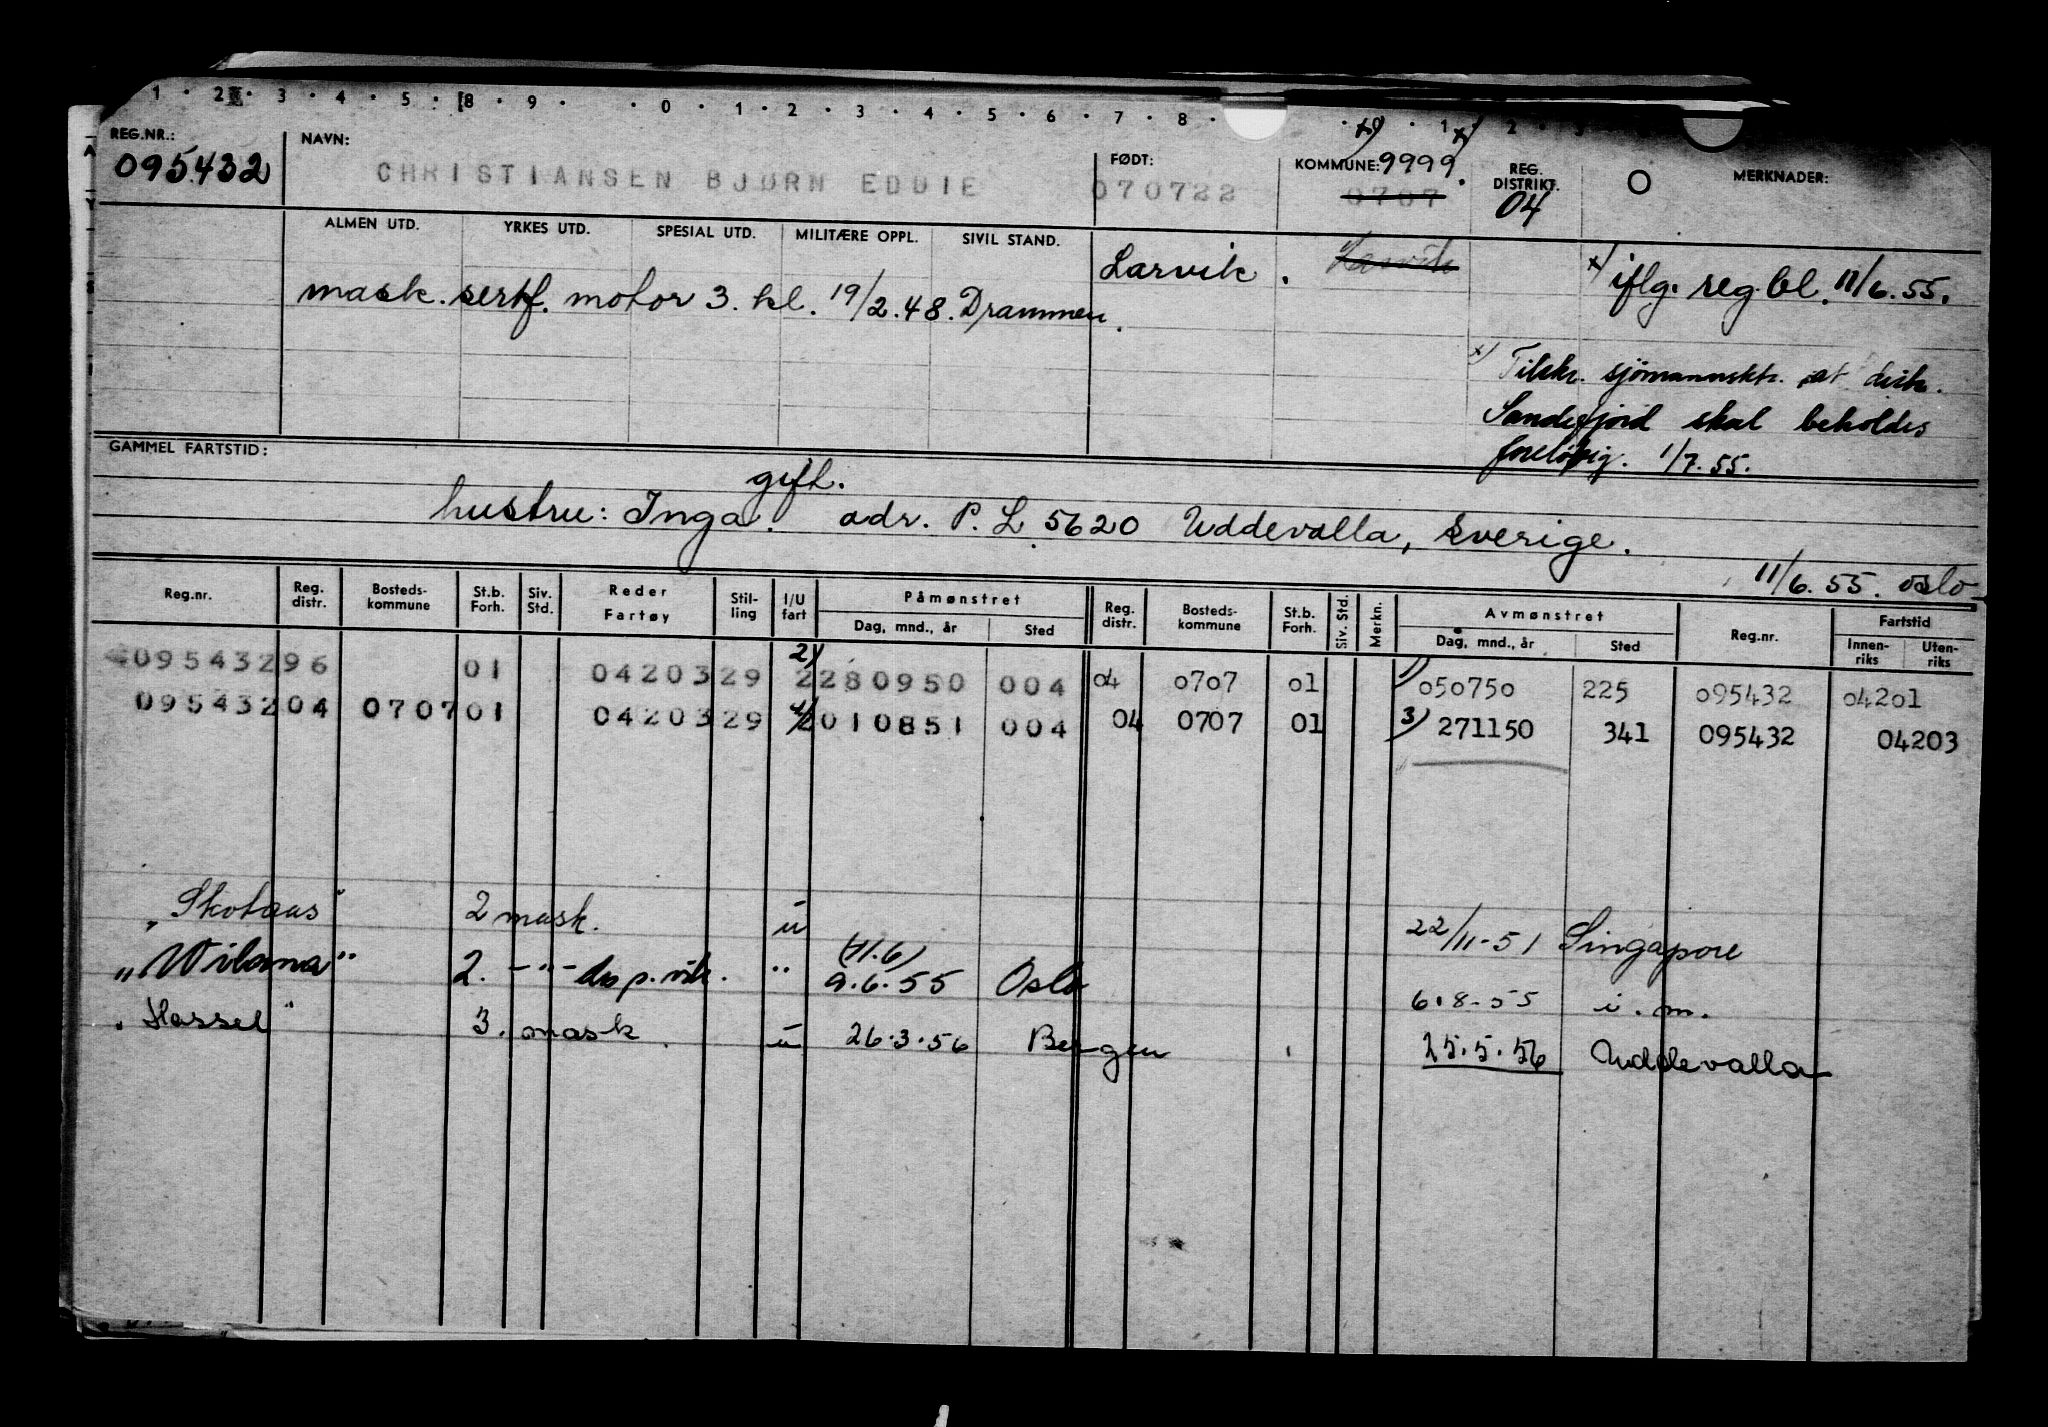 1 · 2 · 3 · 4 · 5 · 8 · 9 · · 0 · 1 · 2 · 3 · 4 · 5 · 6 · 7 · 8 · x) · 1 x) 2 · 3
REG.NR.: 095432 NAVN: CHRISTIANSEN BJØRN EDDIE FØDT: 070722 KOMMUNE: 9999. 0707 REG. DISTRIKT. 04 O MERKNADER:
ALMEN UTD. YRKES UTD. SPESIAL UTD. MILITÆRE OPPL. SIVIL STAND. Larvik. Larvik x) iflg. reg.bl. 11/6.55.
mask. sertf. motor 3. kl. 19/2.48. Drammen.
x) Tilskr. sjömannsktr. at distr.
Sandefjord skal beholdes
foreløbig. 1/7.55.
GAMMEL FARTSTID:
gift.
hustru: Inga. adr. P.L. 5620 Uddevalla, Sverige.
11/6.55. Oslo
Reg.nr. Reg. distr. Bosteds-kommune St.b. Forh. Siv. Std. Reder Fartøy Stil-ling I/U fart Påmønstret Dag, mnd., år Sted Reg. distr. Bosteds-kommune St.b. Forh. Siv. Std. Merkn. Avmønstret Dag, mnd., år Sted Reg.nr. Fartstid Innen-riks Uten-riks
09543296 01 04203 29 2) 2 280950 004 04 0707 01 1) 050750 225 095432 04201
09543204 0707 01 04203 29 4) 2 010851 004 04 0707 01 3) 271150 341 095432 04203
"Skotaas" 2 mask. u 22/11-51 Singapore
"Wilama" 2. -"- do p. vik. " (11.6) 9.6.55 Oslo 6.8-55 i.m.
"Hassel" 3. mask. u 26.3.56 Bergen 25.5.56 Uddevalla